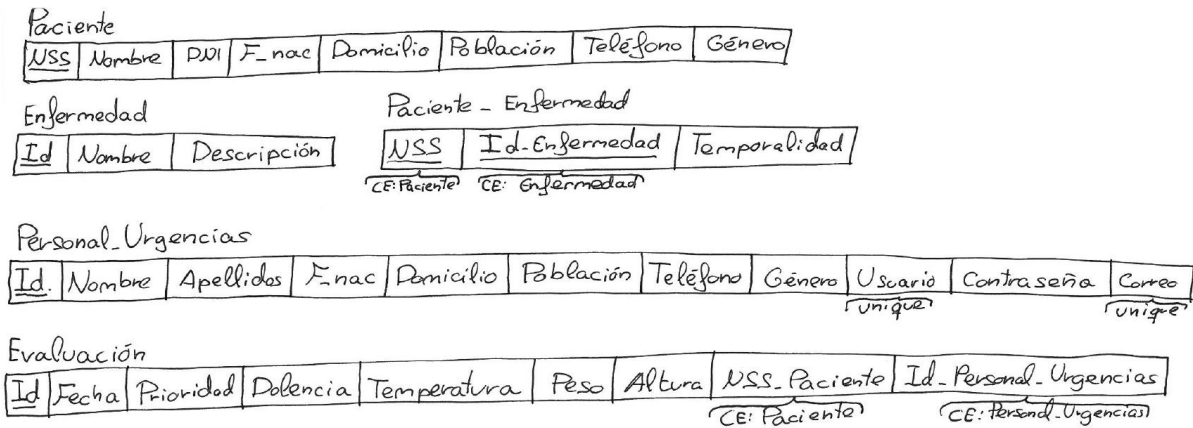 Paciente
NSS Nombre DNI F_nac Domicilio Población Teléfono Género
Enfermedad
Id Nombre Descripción
Paciente - Enfermedad
NSS Id-Enfermedad Temporalidad
CE: Paciente CE: Enfermedad
Personal_Urgencias
Id. Nombre Apellidos F_nac Domicilio Población Teléfono Género Usuario Contraseña Correo
unique unique
Evaluación
Id Fecha Prioridad Dolencia Temperatura Peso Altura NSS_Paciente Id_Personal_Urgencias
CE: Paciente CE: Personal_Urgencias